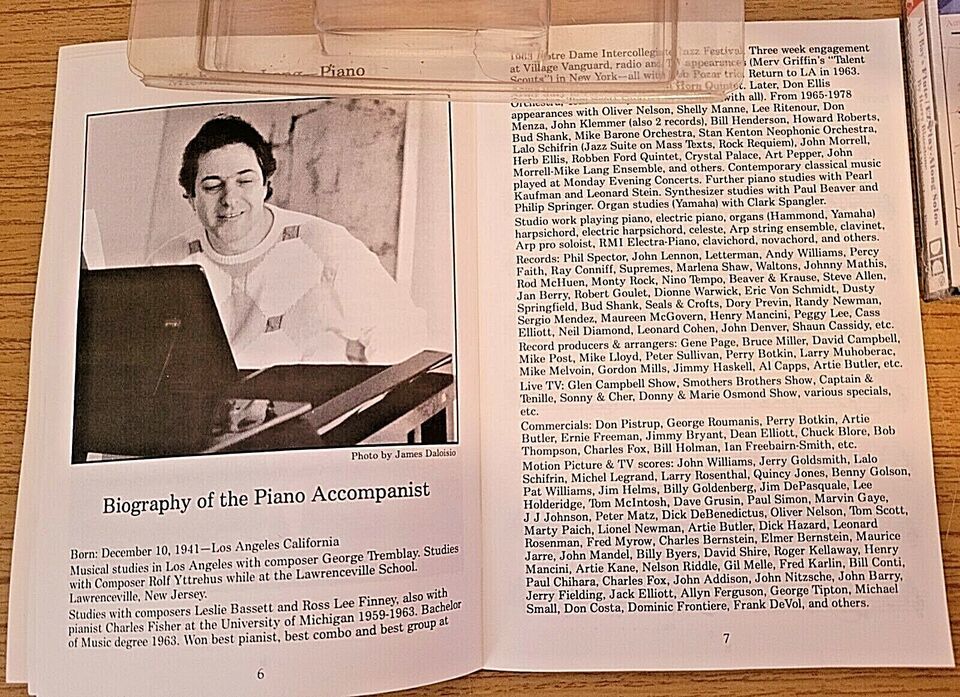 Piano
Photo by James Daloisio
Biography of the Piano Accompanist
Born: December 10, 1941—Los Angeles California
Musical studies in Los Angeles with composer George Tremblay. Studies
with Composer Rolf Yttrehus while at the Lawrenceville School.
Lawrenceville, New Jersey.
Studies with composers Leslie Bassett and Ross Lee Finney, also with
pianist Charles Fisher at the University of Michigan 1959-1963. Bachelor
of Music degree 1963. Won best pianist, best combo and best group at
6
1963 Notre Dame Intercollegiate Jazz Festival. Three week engagement
at Village Vanguard, radio and TV appearances (Merv Griffin's "Talent
Scouts") in New York—all with Bob Pozar trio. Return to LA in 1963.
Horn Quintet. Later, Don Ellis
Orchestra, with all). From 1965-1978
appearances with Oliver Nelson, Shelly Manne, Lee Ritenour, Don
Menza, John Klemmer (also 2 records), Bill Henderson, Howard Roberts,
Bud Shank, Mike Barone Orchestra, Stan Kenton Neophonic Orchestra,
Lalo Schifrin (Jazz Suite on Mass Texts, Rock Requiem), John Morrell,
Herb Ellis, Robben Ford Quintet, Crystal Palace, Art Pepper, John
Morrell-Mike Lang Ensemble, and others. Contemporary classical music
played at Monday Evening Concerts. Further piano studies with Pearl
Kaufman and Leonard Stein. Synthesizer studies with Paul Beaver and
Philip Springer. Organ studies (Yamaha) with Clark Spangler.
Studio work playing piano, electric piano, organs (Hammond, Yamaha)
harpsichord, electric harpsichord, celeste, Arp string ensemble, clavinet,
Arp pro soloist, RMI Electra-Piano, clavichord, novachord, and others.
Records: Phil Spector, John Lennon, Letterman, Andy Williams, Percy
Faith, Ray Conniff, Supremes, Marlena Shaw, Waltons, Johnny Mathis,
Rod McHuen, Monty Rock, Nino Tempo, Beaver & Krause, Steve Allen,
Jan Berry, Robert Goulet, Dionne Warwick, Eric Von Schmidt, Dusty
Springfield, Bud Shank, Seals & Crofts, Dory Previn, Randy Newman,
Sergio Mendez, Maureen McGovern, Henry Mancini, Peggy Lee, Cass
Elliott, Neil Diamond, Leonard Cohen, John Denver, Shaun Cassidy, etc.
Record producers & arrangers: Gene Page, Bruce Miller, David Campbell,
Mike Post, Mike Lloyd, Peter Sullivan, Perry Botkin, Larry Muhoberac,
Mike Melvoin, Gordon Mills, Jimmy Haskell, Al Capps, Artie Butler, etc.
Live TV: Glen Campbell Show, Smothers Brothers Show, Captain &
Tenille, Sonny & Cher, Donny & Marie Osmond Show, various specials,
etc.
Commercials: Don Pistrup, George Roumanis, Perry Botkin, Artie
Butler, Ernie Freeman, Jimmy Bryant, Dean Elliott, Chuck Blore, Bob
Thompson, Charles Fox, Bill Holman, Ian Freebairn-Smith, etc.
Motion Picture & TV scores: John Williams, Jerry Goldsmith, Lalo
Schifrin, Michel Legrand, Larry Rosenthal, Quincy Jones, Benny Golson,
Pat Williams, Jim Helms, Billy Goldenberg, Jim DePasquale, Lee
Holderidge, Tom McIntosh, Dave Grusin, Paul Simon, Marvin Gaye,
J J Johnson, Peter Matz, Dick DeBenedictus, Oliver Nelson, Tom Scott,
Marty Paich, Lionel Newman, Artie Butler, Dick Hazard, Leonard
Rosenman, Fred Myrow, Charles Bernstein, Elmer Bernstein, Maurice
Jarre, John Mandel, Billy Byers, David Shire, Roger Kellaway, Henry
Mancini, Artie Kane, Nelson Riddle, Gil Melle, Fred Karlin, Bill Conti,
Paul Chihara, Charles Fox, John Addison, John Nitzsche, John Barry,
Jerry Fielding, Jack Elliott, Allyn Ferguson, George Tipton, Michael
Small, Don Costa, Dominic Frontiere, Frank DeVol, and others.
7